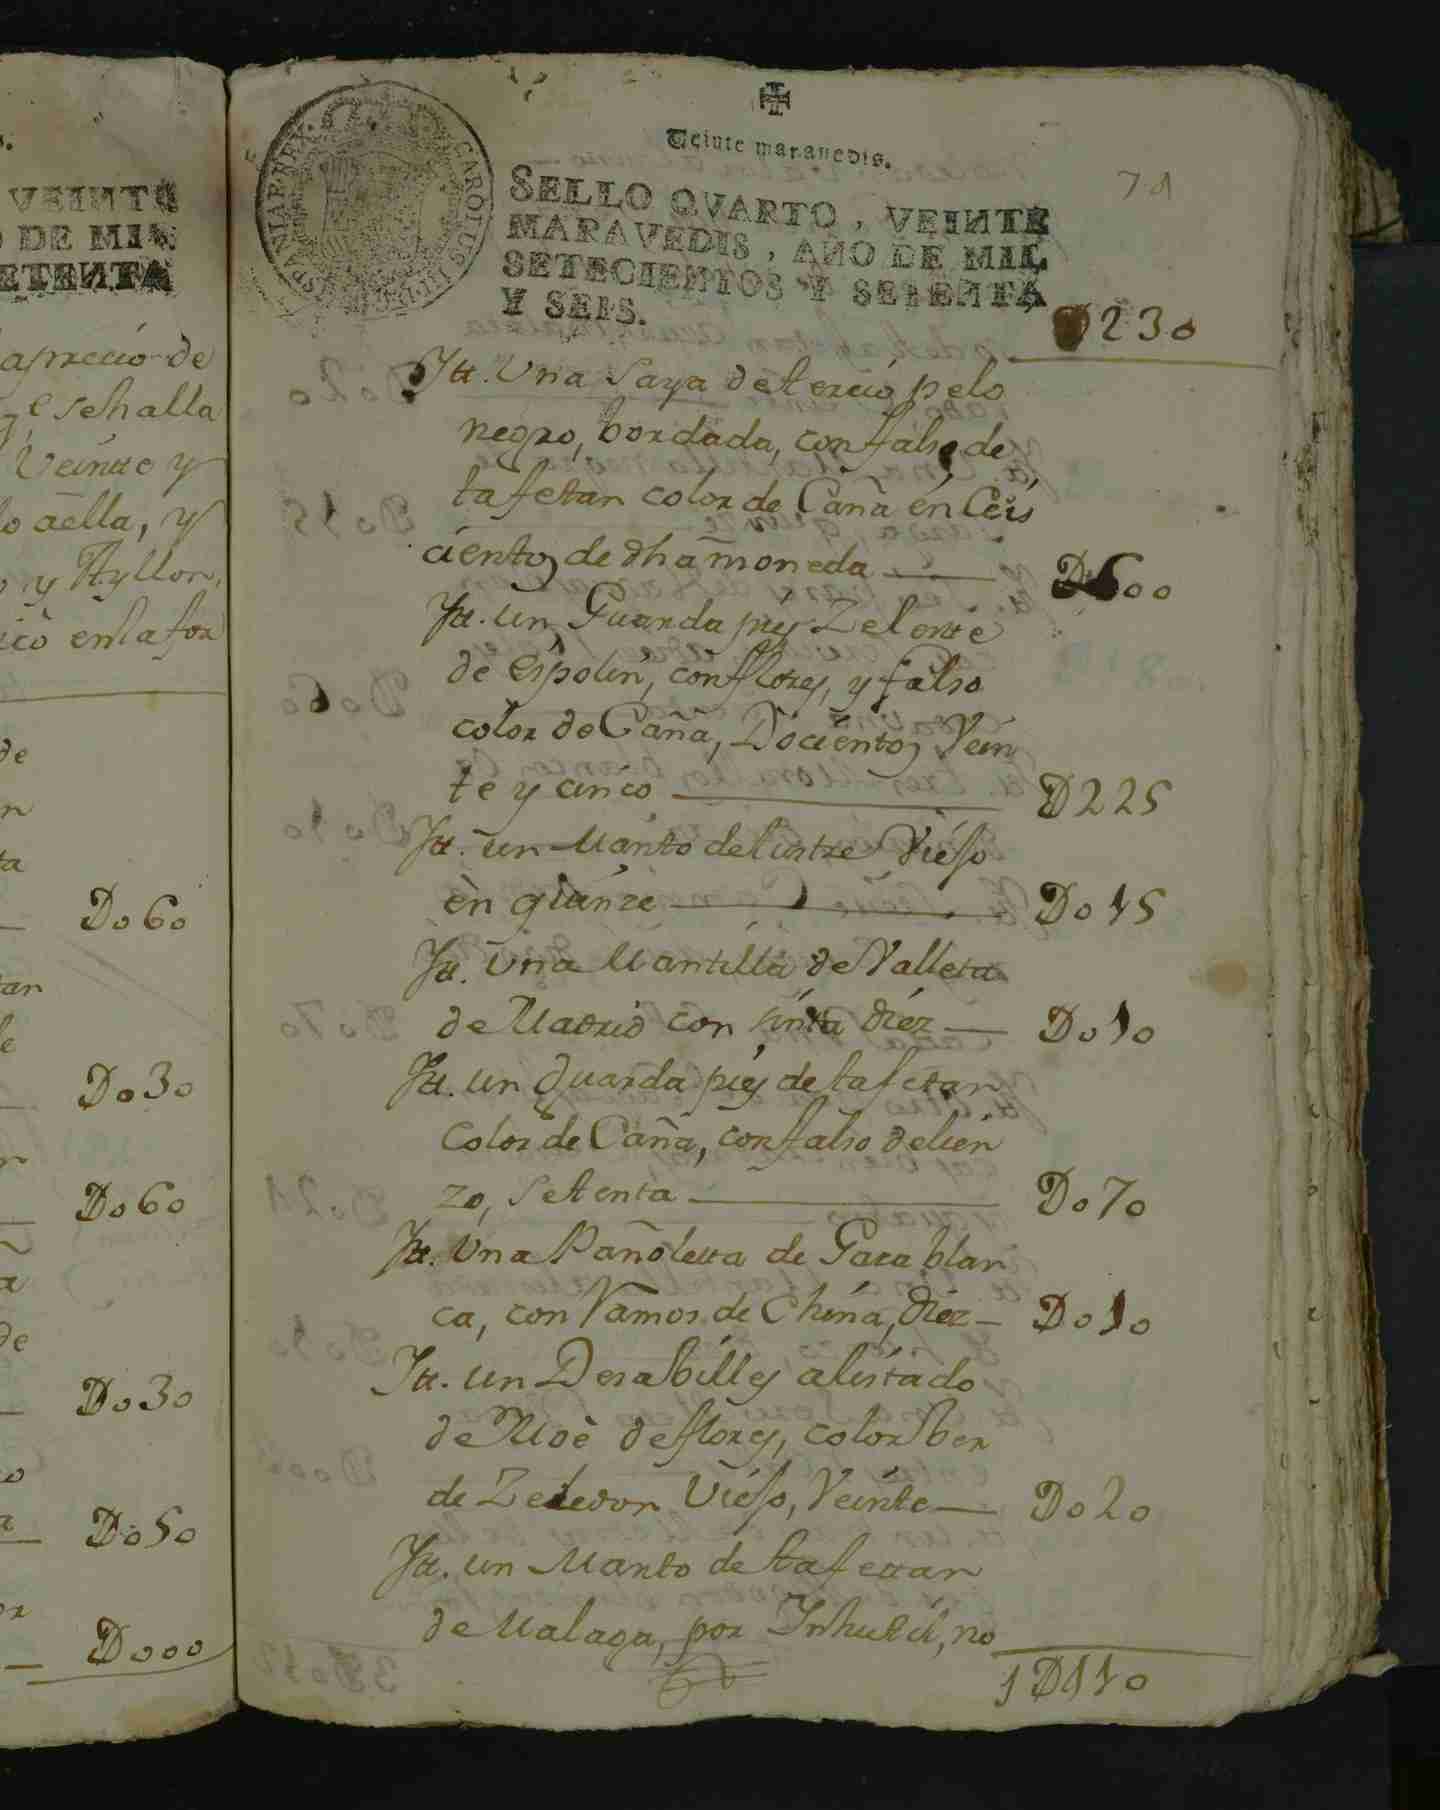 VEINTE
DE MIL
SETENTA
aprecio de
y, esehalla
Veinte y
lo aella, y
y Ayllon,
enla for
de
Do60
tar
Do30
Do60
de
Do30
Do50
D000
Veinte maravedis.
CAROLUS III D G HISPANIAR REX
SELLO QVARTO, VEINTE
MARAVEDIS, AÑO DE MIL
SETECIENTOS Y SETENTA
Y SEIS.
71
D230
Itt. Una Saya deterciopelo
negro, bordada, con falso de
tafetan color de Caña en Ceis
cientos de dha moneda D600
Itt. un Guarda pies Zeleste
de Espolin, con flores, y falso
color de Caña, Docientos Vein
te y cinco D225
Itt. un Manto delustre Viejo
en quinze Do15
Itt. Una Mantilla de Valleta
de Madrid con sinta diez Do10
Itt. un Guarda pies detafetan
Color de Caña, con falso delien
zo, Setenta Do70
Itt. Una Pañoleta de Gasa blan
ca, con Ramos de China, diez Do10
Itt. un Desabilles alistado
de Moè deflores, color Ber
de Zeledon Viejo, Veinte Do20
Itt. un Manto detafettan
de Malaga, por Inhutil, no
1D110